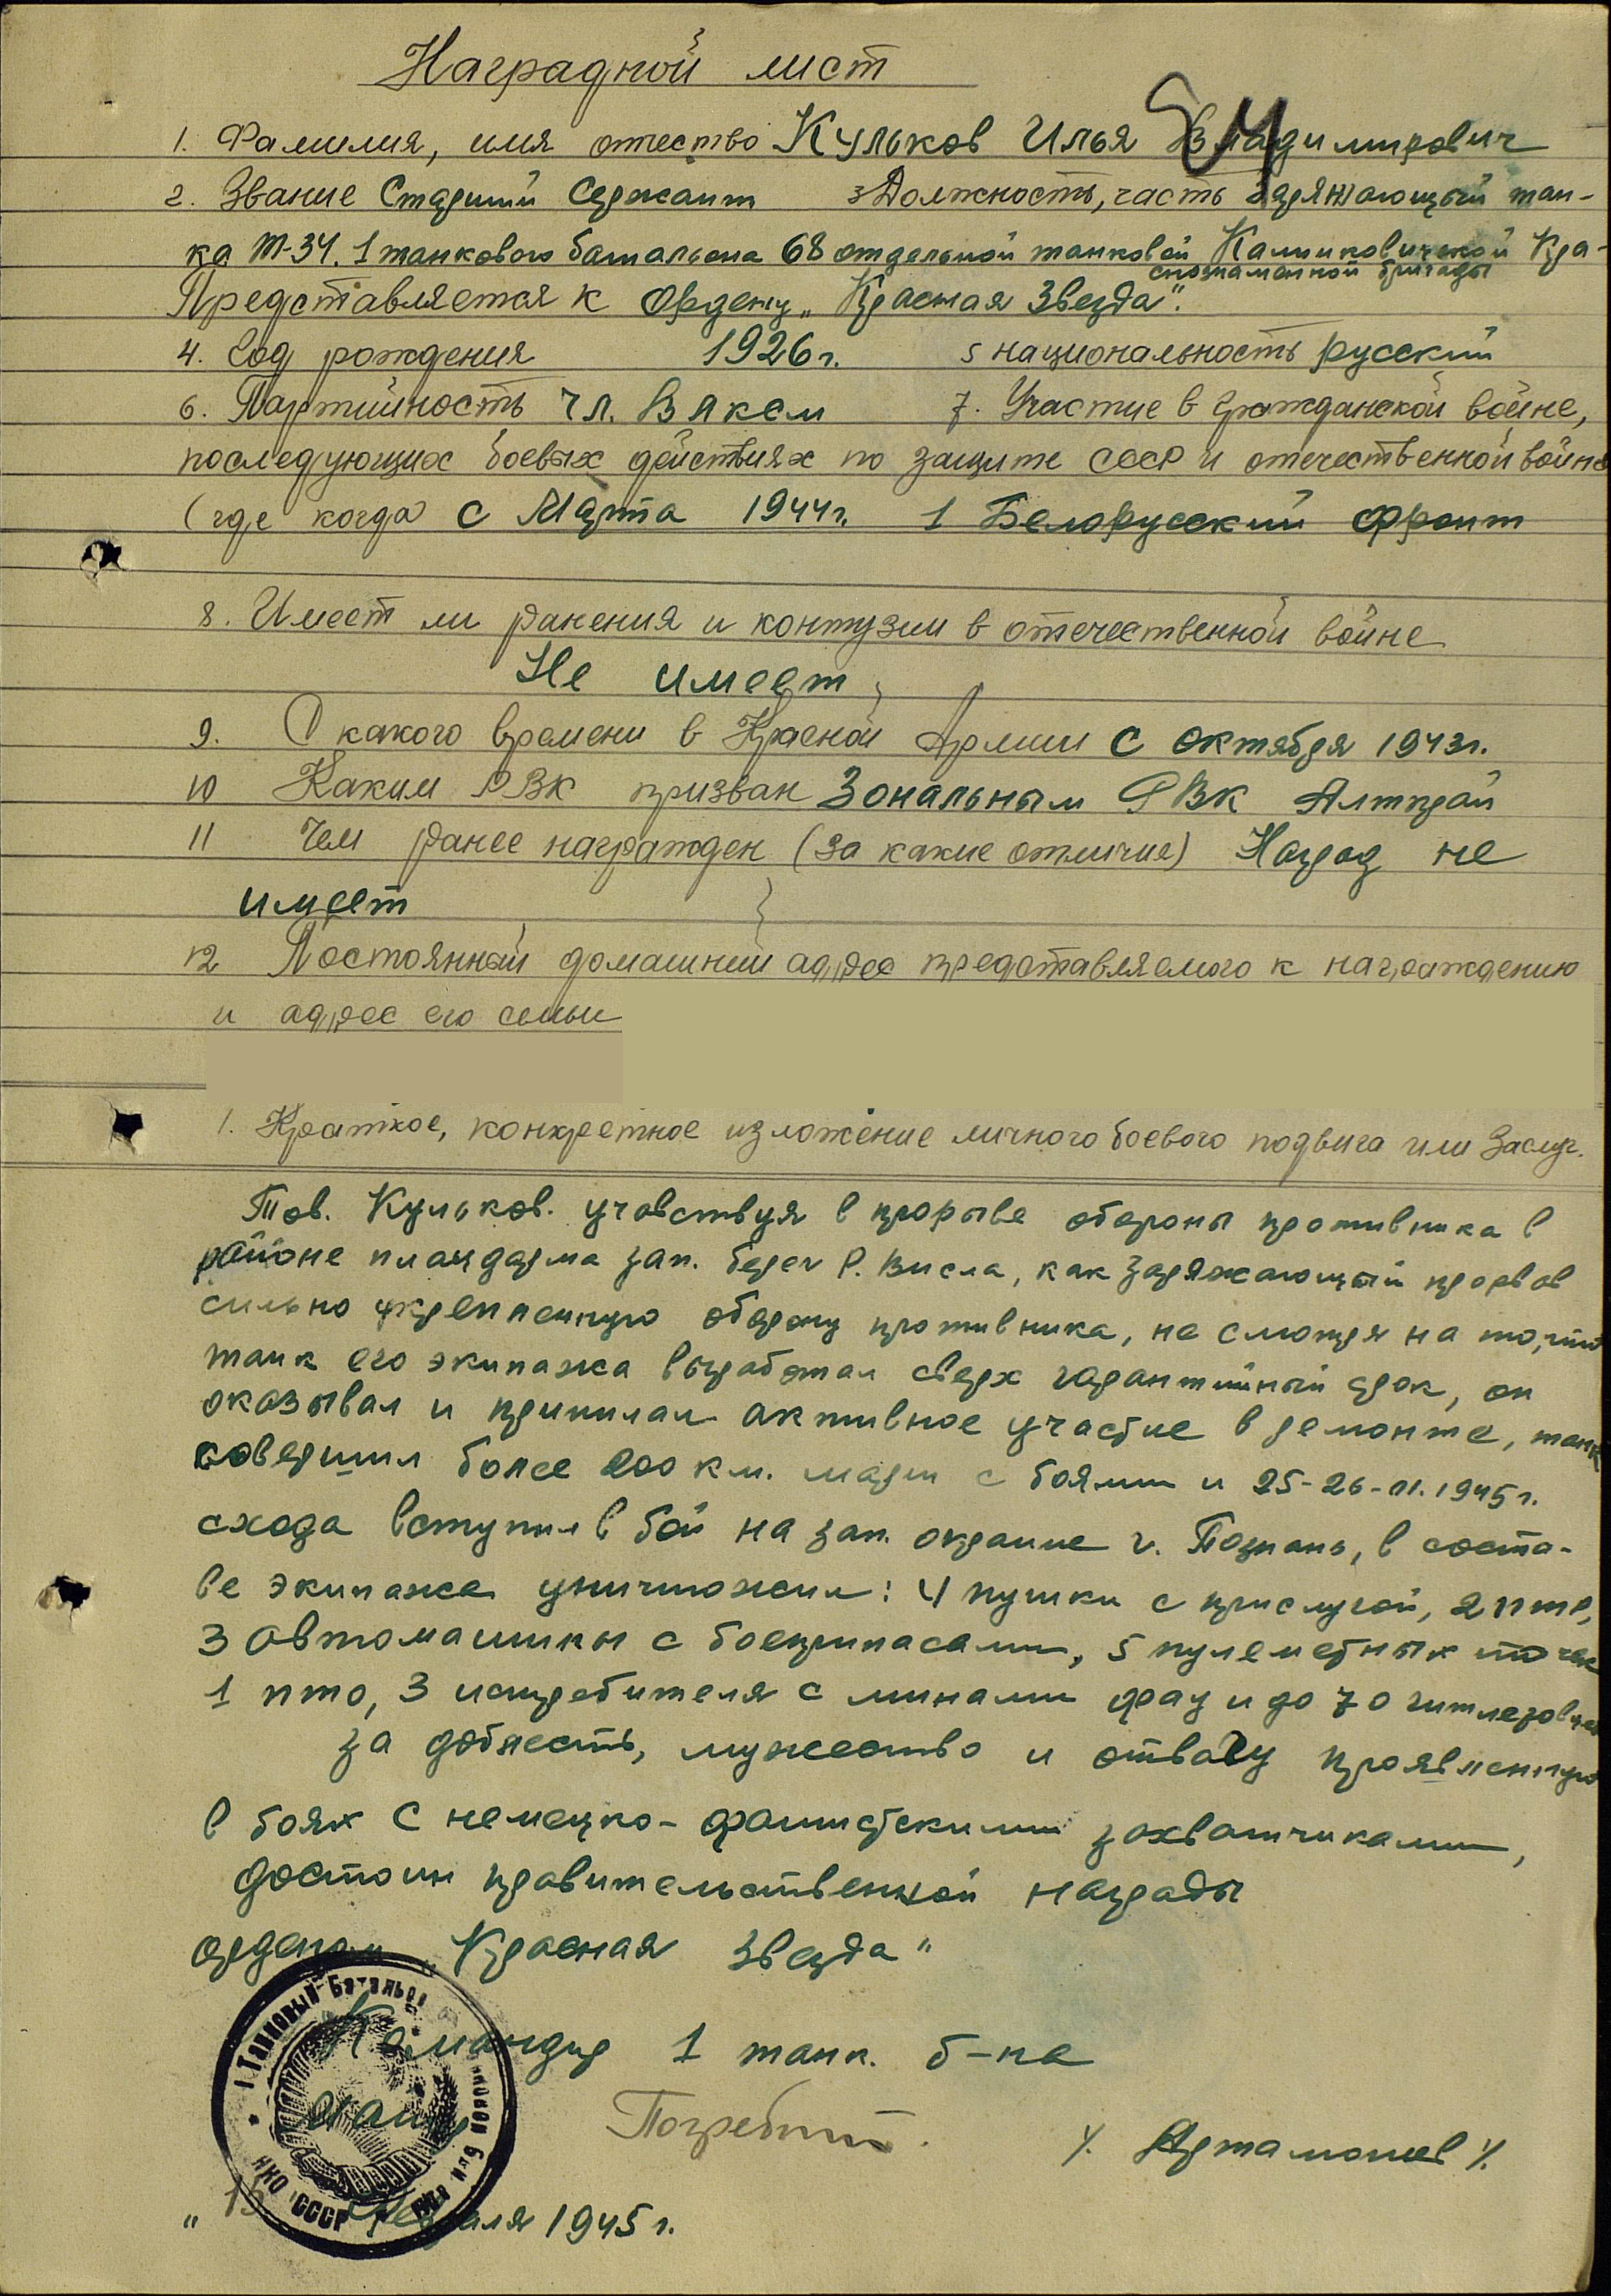 Наградной лист
1. Фамилия, имя отчество Кульков Илья Владимирович
2. Звание Старший Сержант 3 Должность, часть заряжающий тан-
ка Т-34. 1 танкового батальона 68 отдельной танковой Калинковичской Кра-
снознаменной бригады
Представляется к Ордену „Красная Звезда".
4. Год рождения 1926 г. 5 национальность русский
6. Партийность чл. ВЛКСМ 7. Участие в гражданской войне,
последующих боевых действиях по защите СССР и отечественной войне
(где когда) с Марта 1944 г. 1 Белорусский Фронт
8. Имеет ли ранения и контузии в отечественной войне
Не имеет
9. С какого времени в Красной Армии с октября 1943 г.
10 Каким РВК призван Зональным РВК Алткрай
11 Чем ранее награжден (за какие отличия) Наград не
имеет
12 Постоянный домашний адрес представляемого к награждению
и адрес его семьи
1. Краткое, конкретное изложение личного боевого подвига или заслуг.
Тов. Кульков. учавствуя в прорыве обороны противника в
районе плацдарма зап. берег р. Висла, как заряжающий прорвав
сильно укрепленную оборону противника, не смотря на то, что
танк его экипажа выработал сверх гарантийный срок, он
оказывал и принимал активное участие в ремонте, танк
совершил более 200 км. марш с боями и 25-26-01.1945 г.
схода вступил в бой на зап. окраине г. Познань, в соста-
ве экипажа уничтожил: 4 пушки с прислугой, 2 ПТР,
3 автомашины с боеприпасами, 5 пулеметных точек
1 пто, 3 истребителя с минами фау и до 70 гитлеровцев
за доблесть, мужество и отвагу проявленную
в боях с немецко-фашистскими захватчиками,
достоин правительственной награды
орденом „Красная Звезда"
Командир 1 танк. б-на
Погребной.
/. Артамонов /.
" 15 Февраля 1945 г.
1 Танковый Батальон
НКО СССР